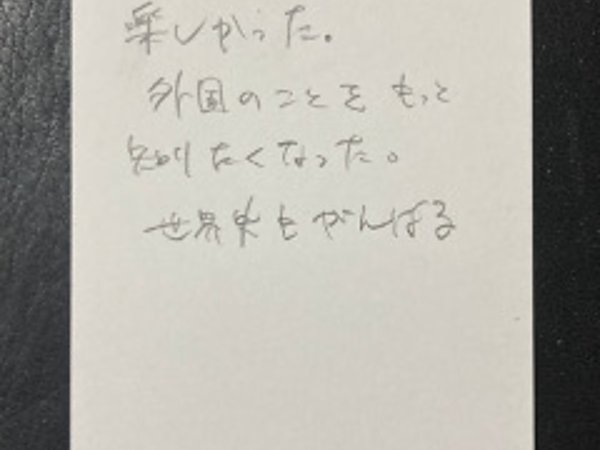 楽しかった。
外国のことをもっと
知りたくなった。
世界史もがんばる